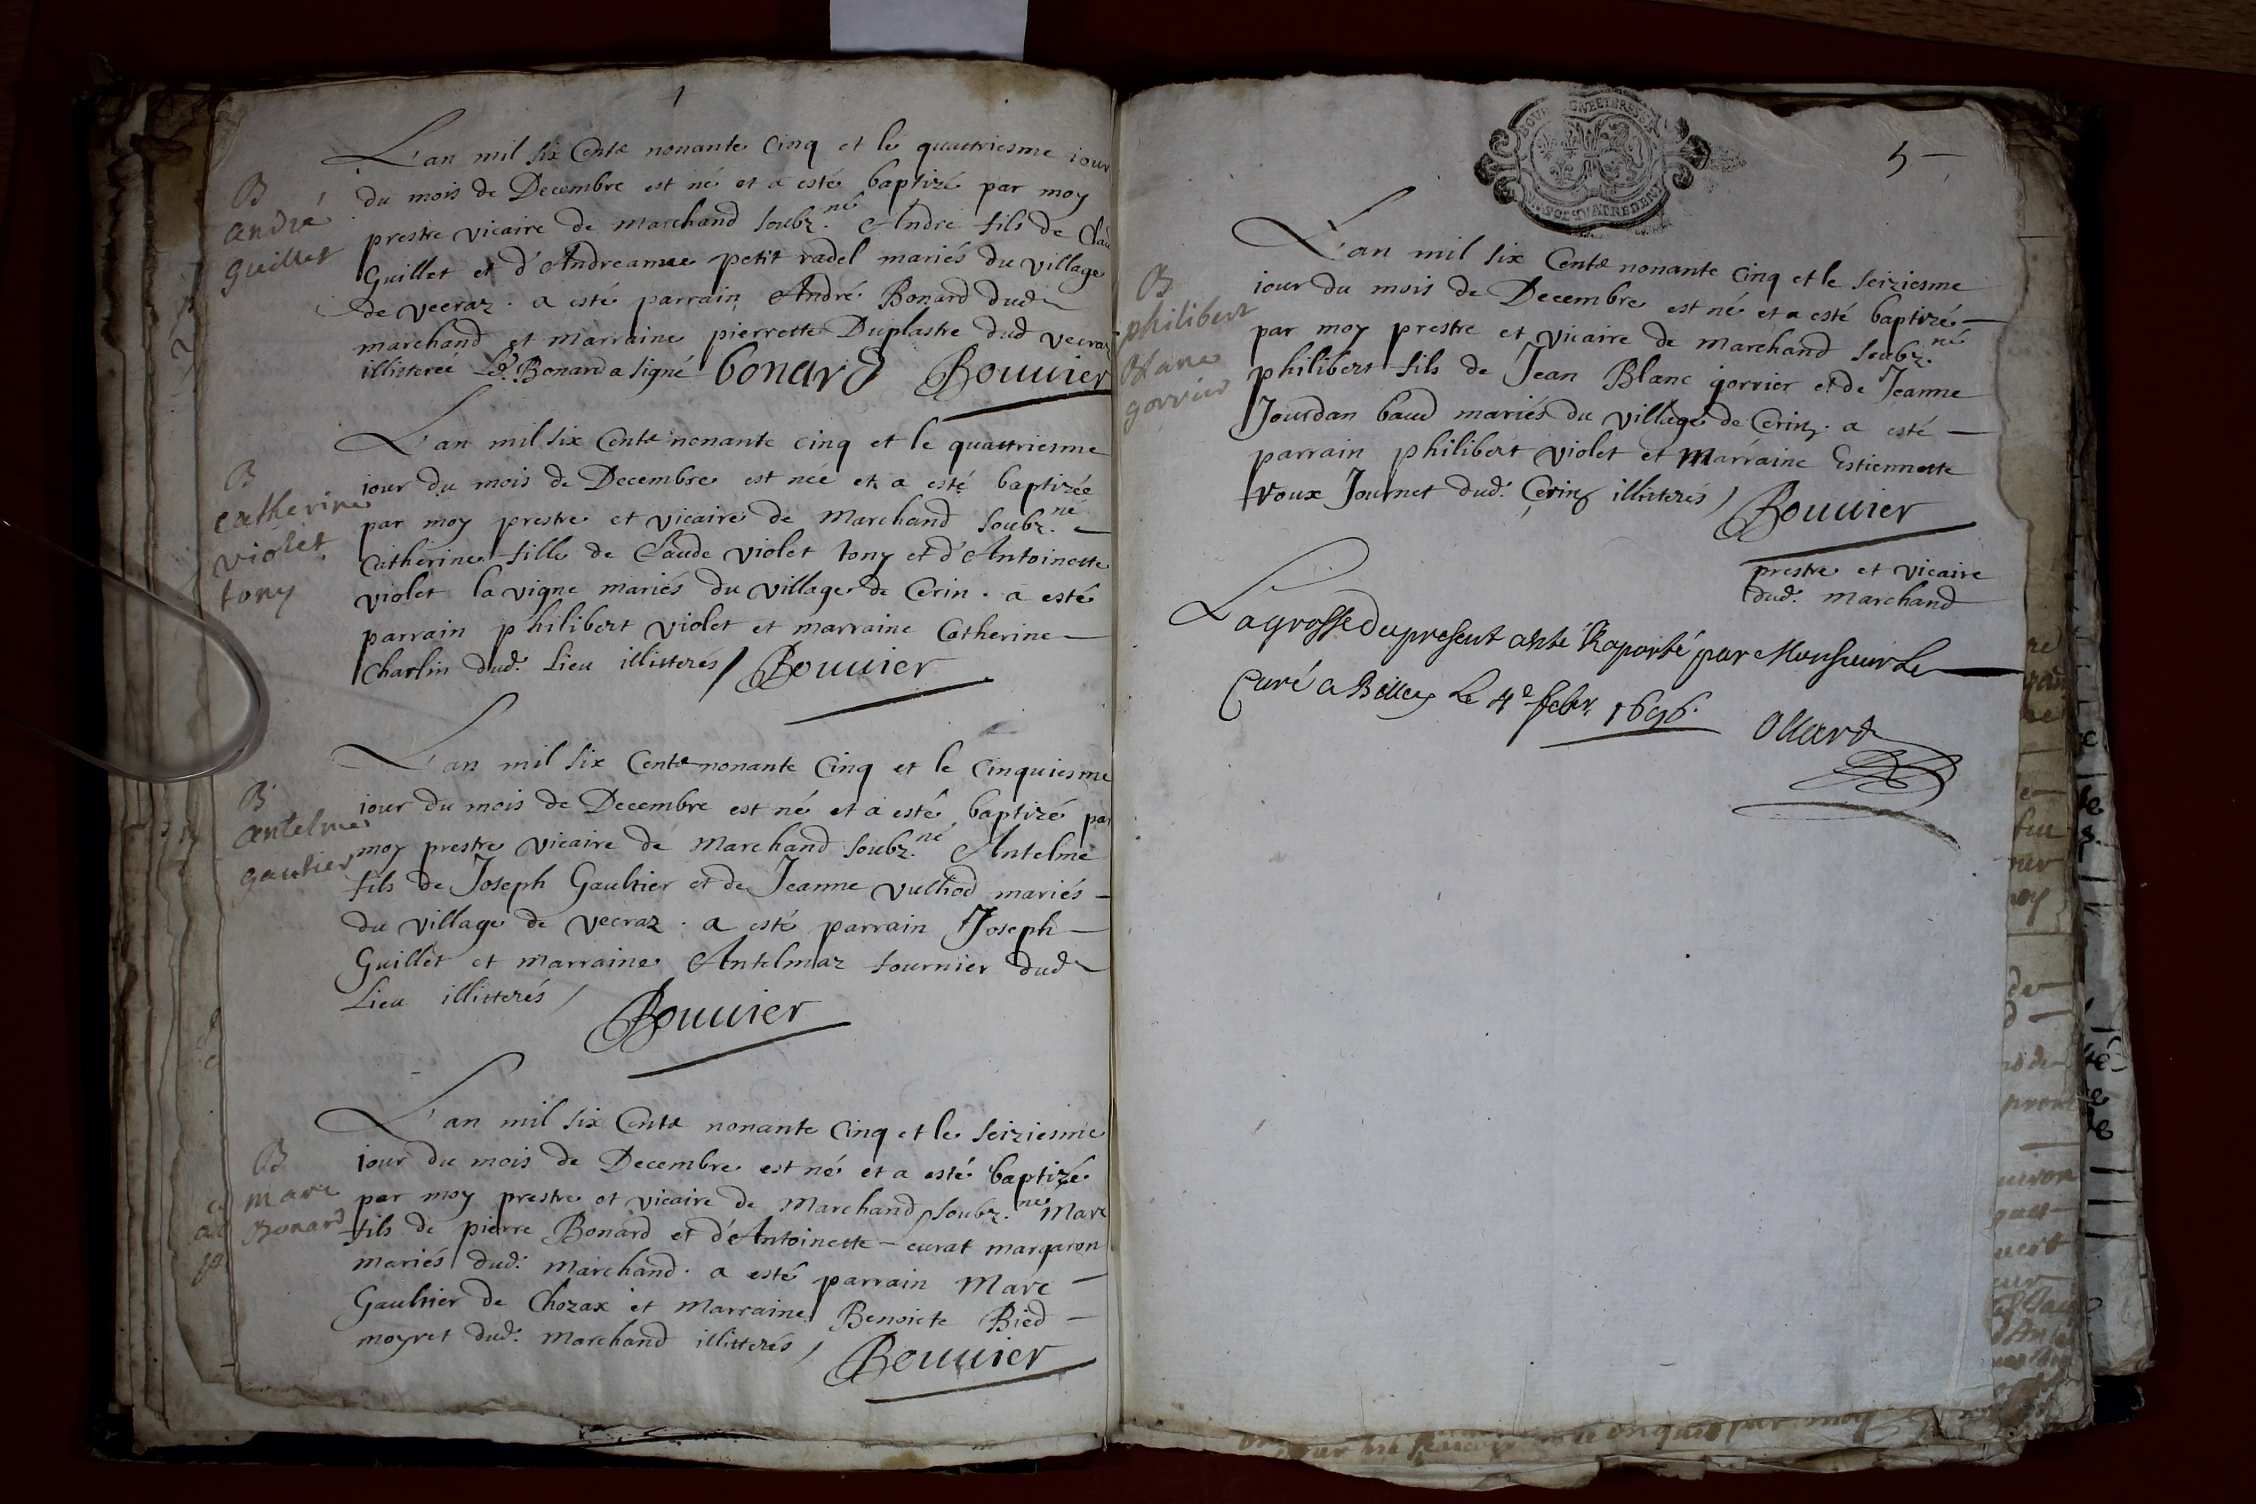 L'an mil six Cents nonante Cinq et le quattriesme iour
du mois de Decembre est né et a esté baptizé par moy
prestre vicaire de Marchand soubz.né André fils de Clau
Guillet et d'Andreamee petit radel mariés du village
de vecraz . a esté parrain André Bonard dud
marchand et Marraine pierrette Duplastre dud vecraz
illitereé Led. Bonard a signé bonard Bouuier
B
André
guillet
L'an mil six Cents nonante cinq et le quattriesme
iour du mois de Decembre est née et a esté baptizée
par moy prestre et vicaire de Marchand soubz.né
Catherine fille de Claude violet tony et d'Antoinette
violet la vigne mariés du village de Cerin . a esté
parrain philibert violet et marraine Catherine
Charlin dud. Lieu illitterés / Bouuier
B
catherine
violet
tony
L'an mil six Cents nonante Cinq et le Cinquiesme
iour du mois de Decembre est né et a esté baptizé par
moy prestre vicaire de Marchand soubz.né Antelme
fils de Joseph Gaultier et de Jeanne vulliod mariés
du village de vecraz . a esté parrain Joseph
Guillet et marraine Antelmaz tournier dud
Lieu illitterés / Bouuier
B
antelme
gautier
L'an mil six Cents nonante Cinq et le seiziesme
iour du mois de Decembre est né et a esté baptizé
par moy prestre et vicaire de Marchand soubz.né Marc
fils de pierre Bonard et d'Antoinette curat margaron
mariés dud. Marchand . a esté parrain Marc
Gaultier de Chozax et Marraine Benoicte Bied
moyret dud. Marchand illitterés / Bouuier
B
marc
Bonard
5
L'an mil six Cents nonante cinq et le seiziesme
iour du mois de Decembre est né et a esté baptizé
par moy prestre et vicaire de Marchand soubz.né
philibert fils de Jean Blanc gorrier et de Jeanne
Jourdan baud mariés du village de Cerin . a esté
parrain philibert violet et Marraine Estiennette
roux Journet dud. Cerin illitterés / Bouuier
prestre et vicaire
dud. Marchand
B
philibert
Blanc
gorrier
La grosse du present a esté Raporté par Monsieur Le
Curé a Belley Le 4e febr. 1696. Ollard